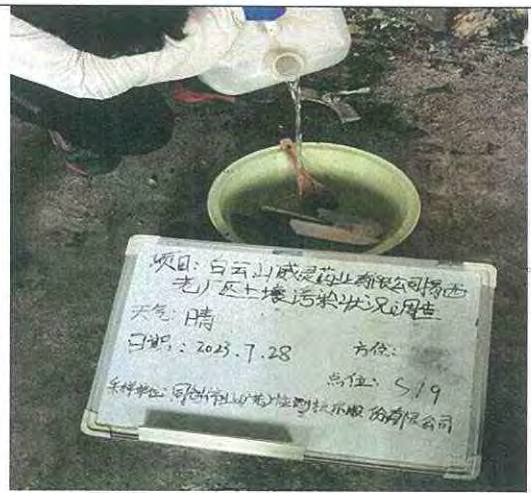 项目：白云山威灵药业有限公司揭西
老厂区土壤污染状况调查
天气：晴
日期：2023.7.28 方位：
点位：S19
采样单位：股份有限公司